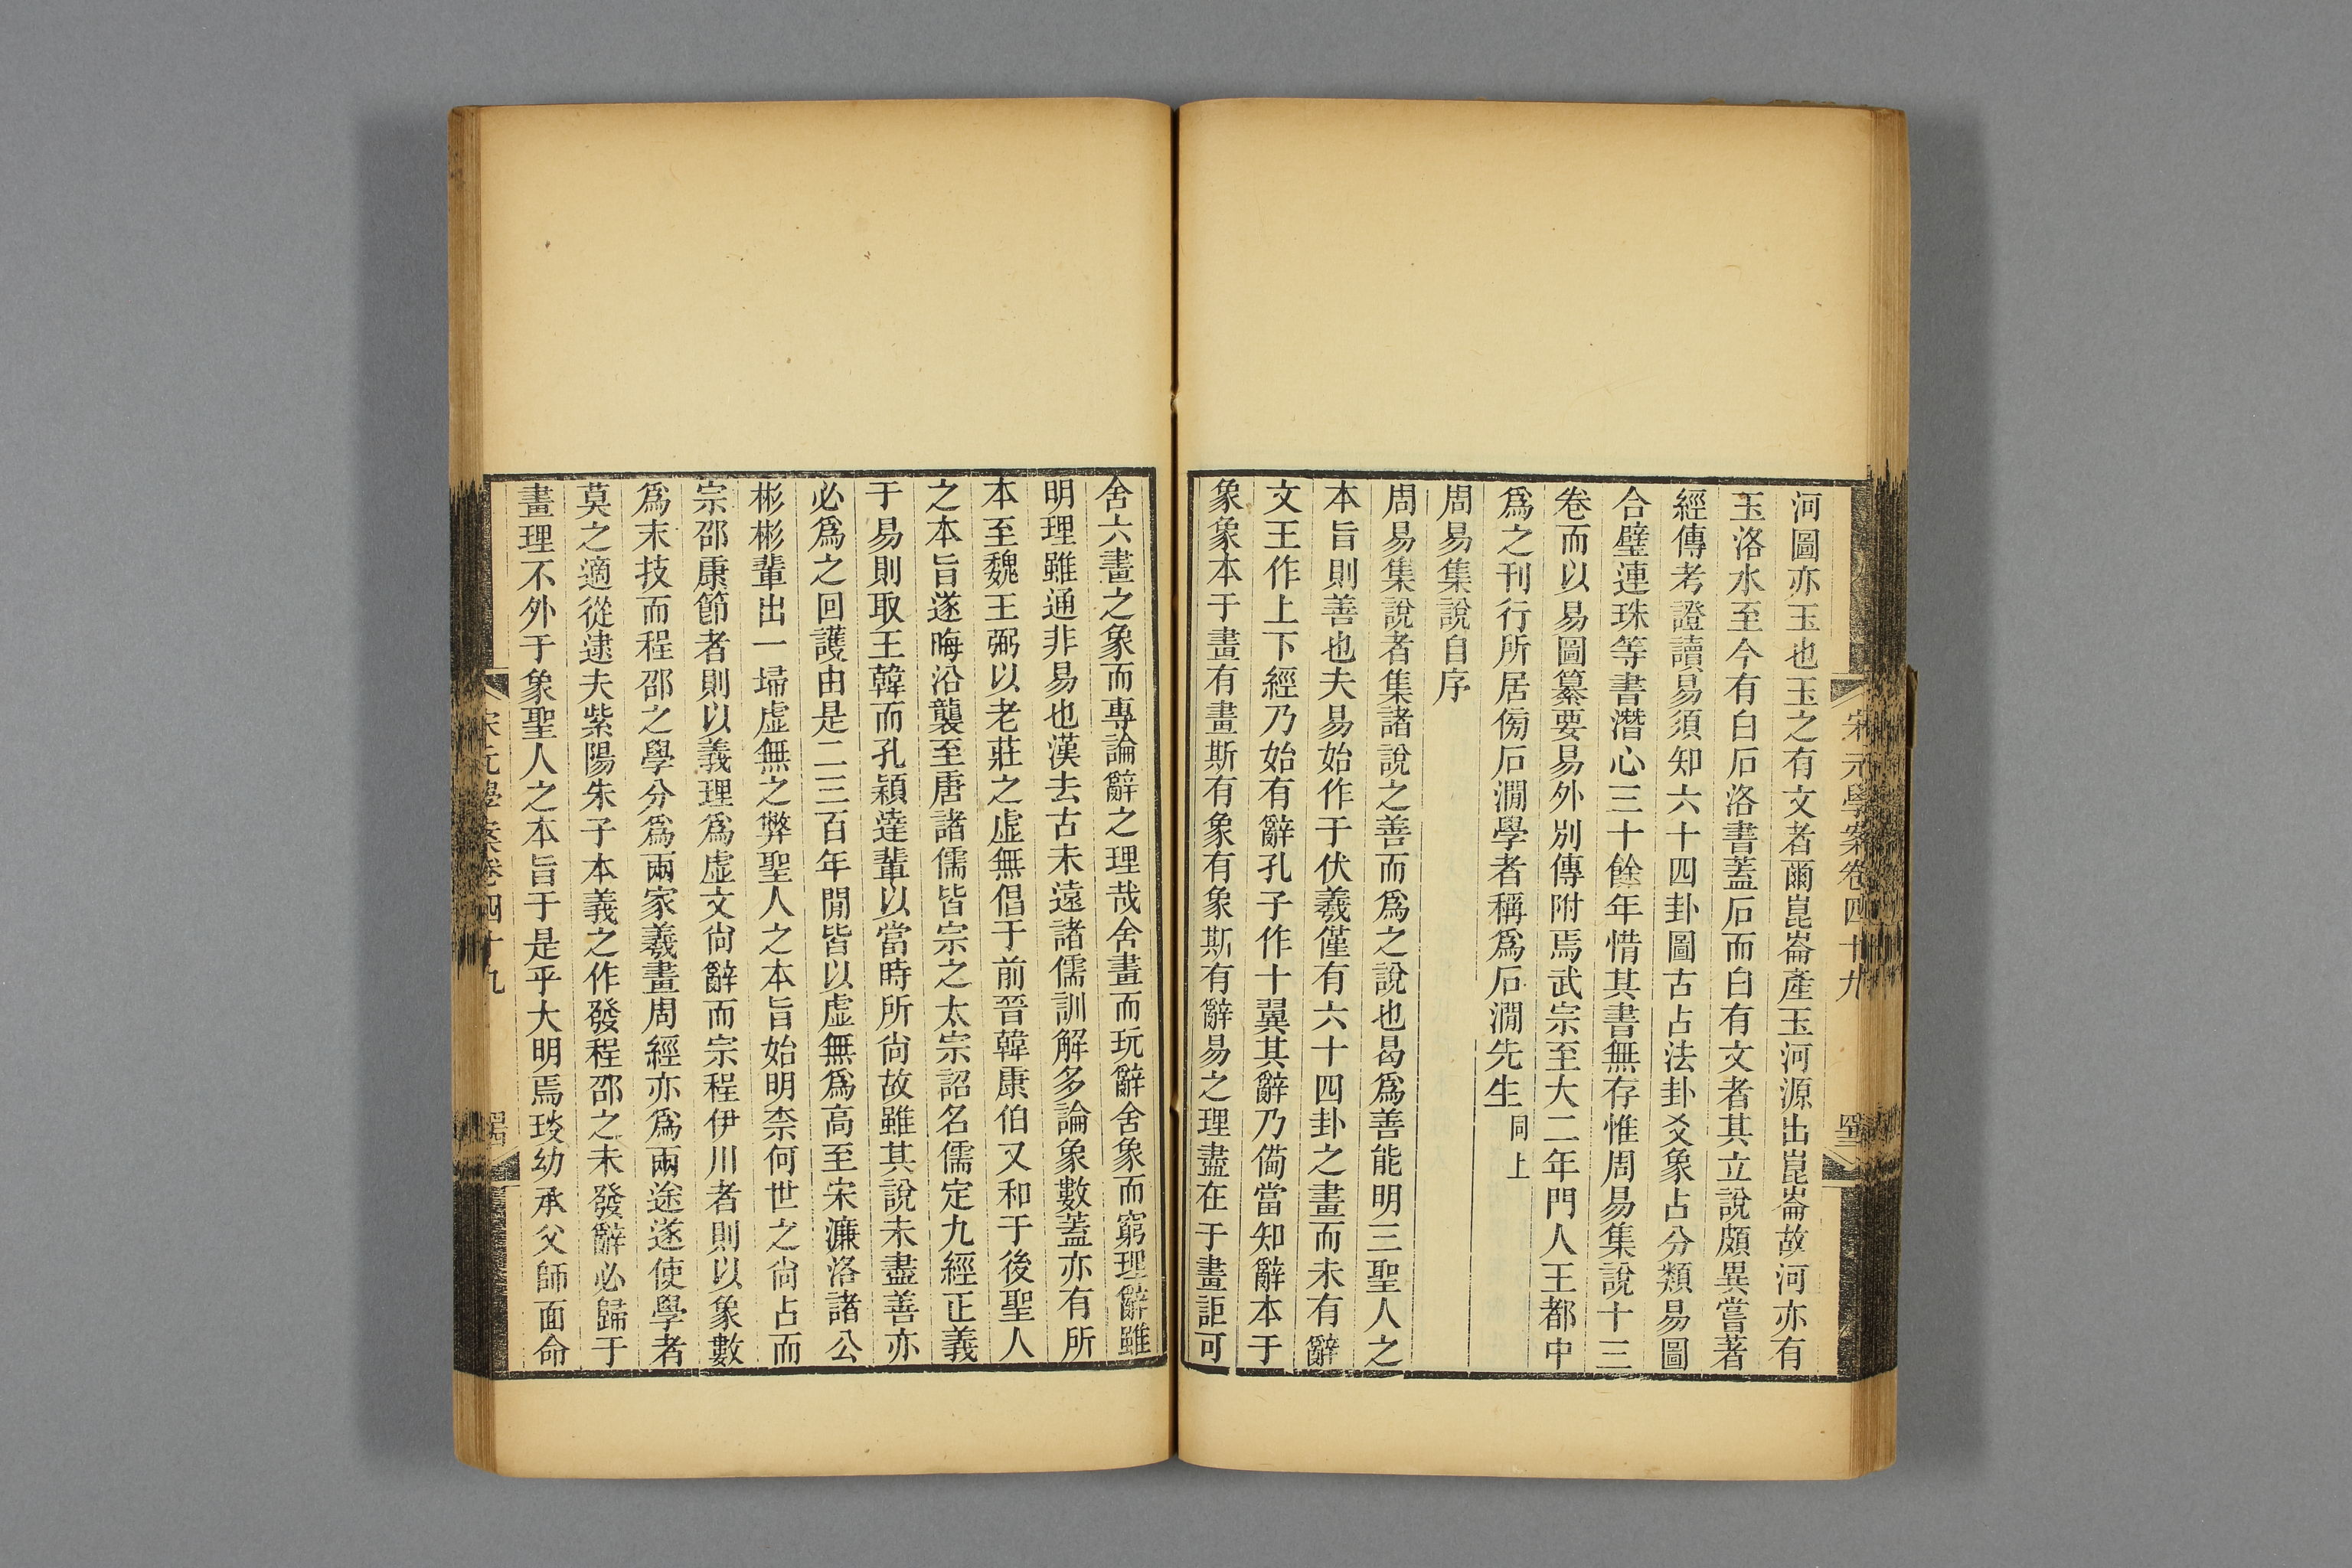 宋元學案卷四十九
河圖亦玉也玉之有文者爾崑崙產玉河源出崑崙故河亦有
玉洛水至今有白石洛書蓋石而白有文者其立說頗異嘗著
經傳考證讀易須知六十四卦圖古占法卦爻象占分類易圖
合璧連珠等書潛心三十餘年惜其書無存惟周易集說十三
卷而以易圖纂要易外別傳附焉武宗至大二年門人王都中
爲之刊行所居傍石澗學者稱爲石澗先生同上
周易集說自序
周易集說者集諸說之善而爲之說也曷爲善能明三聖人之
本旨則善也夫易始作于伏羲僅有六十四卦之畫而未有辭
文王作上下經乃始有辭孔子作十翼其辭乃備當知辭本于
象象本于畫有畫斯有象有象斯有辭易之理盡在于畫詎可
舍六畫之象而專論辭之理哉舍畫而玩辭舍象而窮理辭雖
明理雖通非易也漢去古未遠諸儒訓解多論象數蓋亦有所
本至魏王弼以老莊之虛無倡于前晉韓康伯又和于後聖人
之本旨遂晦沿襲至唐諸儒皆宗之太宗詔名儒定九經正義
于易則取王韓而孔穎達輩以當時所尙故雖其說未盡善亦
必爲之回護由是二三百年閒皆以虛無爲高至宋濂洛諸公
彬彬輩出一埽虛無之弊聖人之本旨始明柰何世之尙占而
宗邵康節者則以義理爲虛文尙辭而宗程伊川者則以象數
爲末技而程邵之學分爲兩家羲畫周經亦爲兩途遂使學者
莫之適從逮夫紫陽朱子本義之作發程邵之未發辭必歸于
畫理不外于象聖人之本旨于是乎大明焉琰幼承父師面命
宋元學案卷四十九